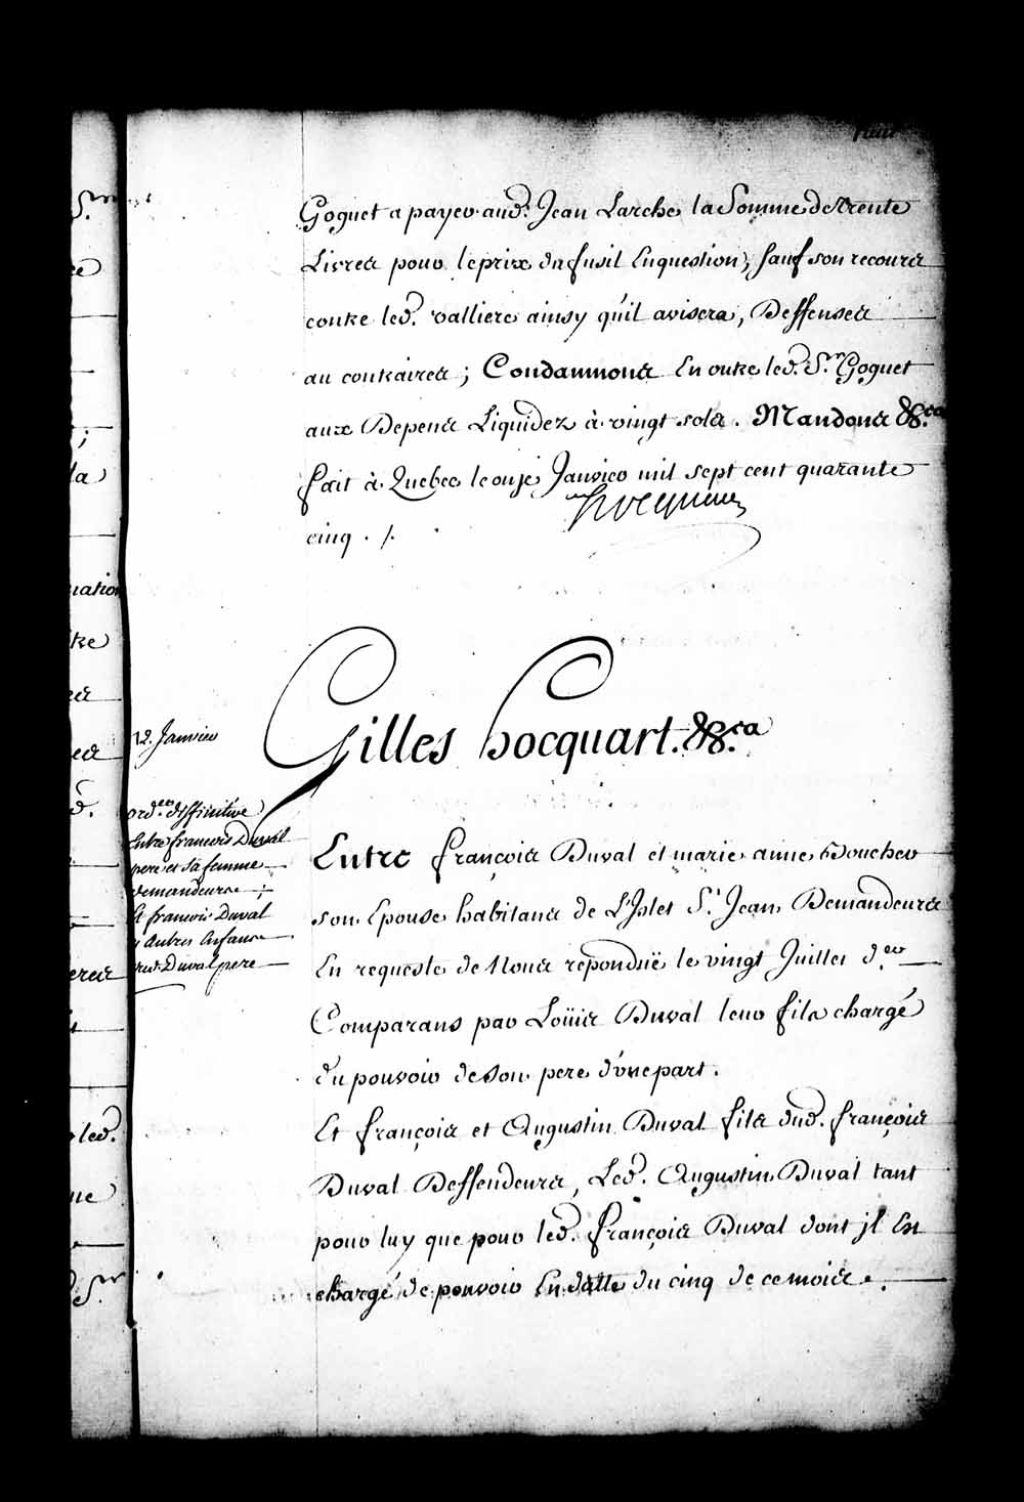 Goguet a payer aud. Jean Larche la Somme de trente
Livres pour le prix du fusil En question; sauf son recours
contre led. valliere ainsy qu'il avisera, Deffenses
au contraires; Condamnons En outre led. Sr. Goguet
aux Depens Liquidez à vingt sols. Mandons &c.a
fait à Quebec le onze Janvier mil sept cent quarante
cinq ./.
hocquart
Gilles hocquart. &c.a
12. Janvier
ord.ce deffinitive
Entre francois Duval
pere et sa femme
demandeurs;
Et francois Duval
Autres Enfans
dud. Duval pere
Entre françois Duval et marie anne Boucher
son Epouse habitans de L'Islet St. Jean Demandeurs
En requeste de Nous repondüe le vingt Juillet d.er
Comparans par Loüis Duval leur fils chargé
du pouvoir de son pere d'une part.
Et françois et Augustin Duval fils dud. françois
Duval Deffendeurs, Led. Augustin Duval tant
pour luy que pour led. françois Duval dont jl En
chargé de pouvoir En datte du cinq de ce mois